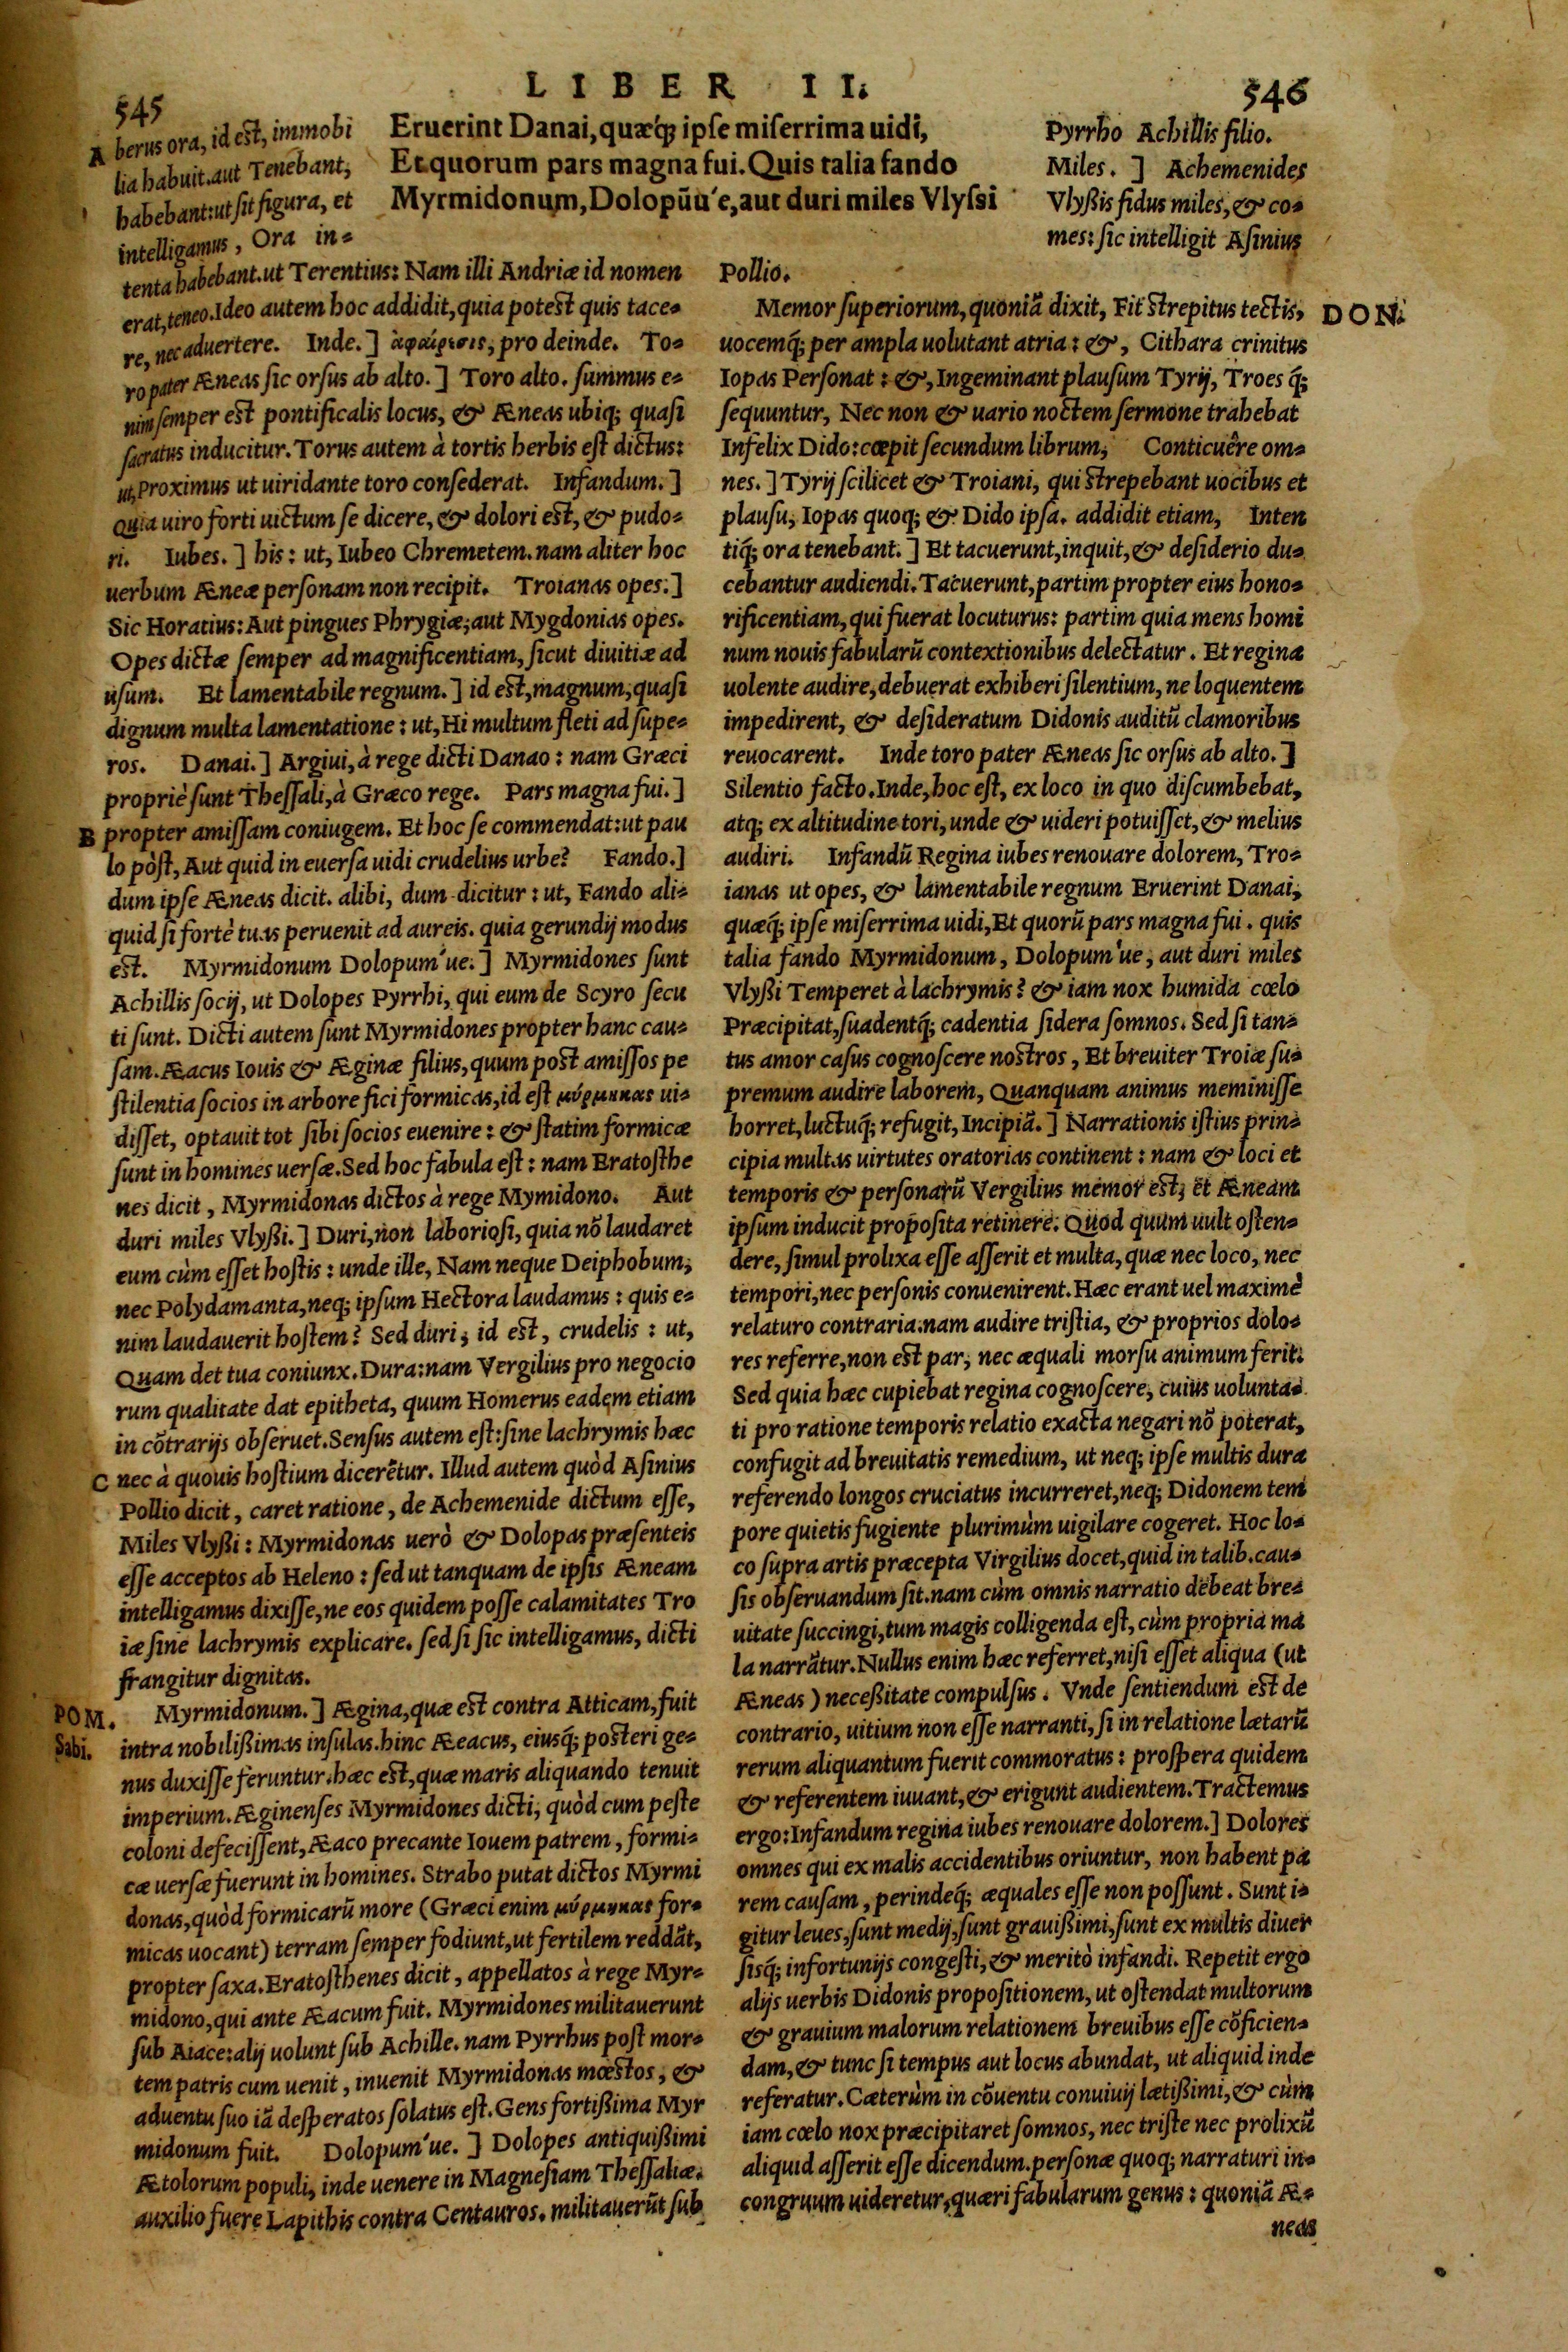 LIBER II.
545
546
Eruerint Danai, quæq́; ipſe miſerrima uidi,
Et quorum pars magna fui. Quis talia fando
Myrmidonum, Dolopūu'e, aut duri miles Vlyſsi
A berus ora, id eſt, immobi
lia habuit. aut Tenebant,
habebant: ut ſit figura, et
intelligamus, Ora in-
tenta habebant. ut Terentius: Nam illi Andriæ id nomen
erat, teneo. Ideo autem hoc addidit, quia poteſt quis tace-
re, nec aduertere. Inde.] ἀφαίρεσις, pro deinde. To-
ro pater Æneas ſic orſus ab alto.] Toro alto. ſummus e-
nim ſemper eſt pontificalis locus, & Æneas ubiq; quaſi
ſacratus inducitur. Torus autem à tortis herbis eſt dictus:
ut, Proximus ut uiridante toro conſederat. Infandum.]
Quia uiro forti uictum ſe dicere, & dolori eſt, & pudo-
ri. Iubes.] his: ut, Iubeo Chremetem. nam aliter hoc
uerbum Æneæ perſonam non recipit. Troianas opes.]
Sic Horatius: Aut pingues Phrygiæ, aut Mygdonias opes.
Opes dictæ ſemper ad magnificentiam, ſicut diuitiæ ad
uſum. Et lamentabile regnum.] id eſt, magnum, quaſi
dignum multa lamentatione: ut, Hi multum fleti ad ſupe-
ros. Danai.] Argiui, à rege dicti Danao: nam Græci
propriè ſunt Theſſali, à Græco rege. Pars magna fui.]
B propter amiſſam coniugem. Et hoc ſe commendat: ut pau
lo pòſt, Aut quid in euerſa uidi crudelius urbe? Fando.]
dum ipſe Æneas dicit. alibi, dum dicitur: ut, Fando ali-
quid ſi fortè tuas peruenit ad aureis. quia gerundij modus
eſt. Myrmidonum Dolopum'ue.] Myrmidones ſunt
Achillis ſocij, ut Dolopes Pyrrhi, qui eum de Scyro ſecu
ti ſunt. Dicti autem ſunt Myrmidones propter hanc cau-
ſam. Æacus Iouis & Æginæ filius, quum poſt amiſſos pe
ſtilentia ſocios in arbore fici formicas, id eſt μύρμηκας ui-
diſſet, optauit tot ſibi ſocios euenire: & ſtatim formicæ
ſunt in homines uerſæ. Sed hoc fabula eſt: nam Eratoſthe
nes dicit, Myrmidonas dictos à rege Mymidono. Aut
duri miles Vlyßi.] Duri, non laborioſi, quia nō laudaret
eum cùm eſſet hoſtis: unde ille, Nam neque Deiphobum,
nec Polydamanta, neq; ipſum Hectora laudamus: quis e-
nim laudauerit hoſtem? Sed duri, id eſt, crudelis: ut,
Quam det tua coniunx. Dura: nam Vergilius pro negocio
rum qualitate dat epitheta, quum Homerus eadem etiam
in cōtrarijs obſeruet. Senſus autem eſt: ſine lachrymis hæc
C nec à quouis hoſtium dicerētur. Illud autem quòd Aſinius
Pollio dicit, caret ratione, de Achemenide dictum eſſe,
Miles Vlyßi: Myrmidonas uerò & Dolopas præſenteis
eſſe acceptos ab Heleno: ſed ut tanquam de ipſis Æneam
intelligamus dixiſſe, ne eos quidem poſſe calamitates Tro
iæ ſine lachrymis explicare. ſed ſi ſic intelligamus, dicti
frangitur dignitas.
POM.
Sabi.
Myrmidonum.] Ægina, quæ eſt contra Atticam, fuit
intra nobilißimas inſulas. hinc Æeacus, eiusq́; poſteri ge-
nus duxiſſe feruntur. hæc eſt, quæ maris aliquando tenuit
imperium. Æginenſes Myrmidones dicti, quòd cum peſte
coloni defeciſſent, Æaco precante Iouem patrem, formi-
cæ uerſæ fuerunt in homines. Strabo putat dictos Myrmi
donas, quòd formicarū more (Græci enim μύρμηκας for-
micas uocant) terram ſemper fodiunt, ut fertilem reddāt,
propter ſaxa. Eratoſthenes dicit, appellatos à rege Myr-
midono, qui ante Æacum fuit. Myrmidones militauerunt
ſub Aiace: alij uolunt ſub Achille. nam Pyrrhus poſt mor-
tem patris cum uenit, inuenit Myrmidonas mœſtos, &
aduentu ſuo iā deſperatos ſolatus eſt. Gens fortißima Myr
midonum fuit. Dolopum'ue.] Dolopes antiquißimi
Ætolorum populi, inde uenere in Magneſiam Theſſaliæ.
auxilio fuere Lapithis contra Centauros. militauerūt ſub
Pyrrho Achillis filio.
Miles.] Achemenides
Vlyßis fidus miles, & co-
mes: ſic intelligit Aſinius
Pollio.
Memor ſuperiorum, quoniā dixit, Fit ſtrepitus tectis, DON.
uocemq́; per ampla uolutant atria: &, Cithara crinitus
Iopas Perſonat: &, Ingeminant plauſum Tyrij, Troes q́;
ſequuntur, Nec non & uario noctem ſermone trahebat
Infelix Dido: cœpit ſecundum librum, Conticuêre om-
nes.] Tyrij ſcilicet & Troiani, qui ſtrepebant uocibus et
plauſu, Iopas quoq; & Dido ipſa. addidit etiam, Inten
tiq́; ora tenebant.] Et tacuerunt, inquit, & deſiderio du-
cebantur audiendi. Tacuerunt, partim propter eius hono-
rificentiam, qui fuerat locuturus: partim quia mens homi
num nouis fabularū contextionibus delectatur. Et regina
uolente audire, debuerat exhiberi ſilentium, ne loquentem
impedirent, & deſideratum Didonis auditū clamoribus
reuocarent. Inde toro pater Æneas ſic orſus ab alto.]
Silentio facto. Inde, hoc eſt, ex loco in quo diſcumbebat,
atq; ex altitudine tori, unde & uideri potuiſſet, & melius
audiri. Infandū Regina iubes renouare dolorem, Tro-
ianas ut opes, & lamentabile regnum Eruerint Danai,
quæq́; ipſe miſerrima uidi, Et quorū pars magna fui. quis
talia fando Myrmidonum, Dolopum'ue, aut duri miles
Vlyßi Temperet à lachrymis? & iam nox humida cœlo
Præcipitat, ſuadentq́; cadentia ſidera ſomnos. Sed ſi tan-
tus amor caſus cognoſcere noſtros, Et breuiter Troiæ ſu-
premum audire laborem, Quanquam animus meminiſſe
horret, luctuq́; refugit, Incipiā.] Narrationis iſtius prin-
cipia multas uirtutes oratorias continent: nam & loci et
temporis & perſonarū Vergilius memor eſt, et Æneam
ipſum inducit propoſita retinere. Quod quum uult oſten-
dere, ſimul prolixa eſſe aſſerit et multa, quæ nec loco, nec
tempori, nec perſonis conuenirent. Hæc erant uel maximè
relaturo contraria. nam audire triſtia, & proprios dolo-
res referre, non eſt par, nec æquali morſu animum ferit.
Sed quia hæc cupiebat regina cognoſcere, cuius uolunta-
ti pro ratione temporis relatio exacta negari nō poterat,
confugit ad breuitatis remedium, ut neq; ipſe multis dura
referendo longos cruciatus incurreret, neq; Didonem tem
pore quietis fugiente plurimùm uigilare cogeret. Hoc lo-
co ſupra artis præcepta Virgilius docet, quid in talib. cau-
ſis obſeruandum ſit. nam cùm omnis narratio debeat bre-
uitate ſuccingi, tum magis colligenda eſt, cùm propria ma
la narrātur. Nullus enim hæc referret, niſi eſſet aliqua (ut
Æneas) neceßitate compulſus. Vnde ſentiendum eſt de
contrario, uitium non eſſe narranti, ſi in relatione lætarū
rerum aliquantum fuerit commoratus: proſpera quidem
& referentem iuuant, & erigunt audientem. Tractemus
ergo: Infandum regina iubes renouare dolorem.] Dolores
omnes qui ex malis accidentibus oriuntur, non habent pa
rem cauſam, perindeq́; æquales eſſe non poſſunt. Sunt i-
gitur leues, ſunt medij, ſunt grauißimi, ſunt ex multis diuer
ſisq́; infortunijs congeſti, & meritò infandi. Repetit ergo
alijs uerbis Didonis propoſitionem, ut oſtendat multorum
& grauium malorum relationem breuibus eſſe cōficien-
dam, & tunc ſi tempus aut locus abundat, ut aliquid inde
referatur. Cæterùm in cōuentu conuiuij lætißimi, & cùm
iam cœlo nox præcipitaret ſomnos, nec triſte nec prolixū
aliquid aſſerit eſſe dicendum. perſonæ quoq; narraturi in-
congruum uideretur, quæri fabularum genus: quoniā Æ-
neas